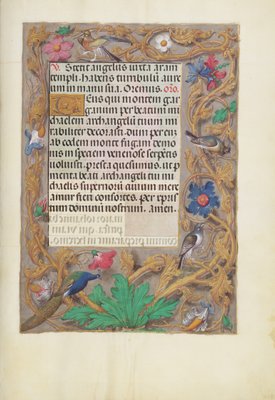 V. Stetit angelus iuxta aram
templi. habens turibulū aure
um in manu sua. Oremus. oro.
Deus qui montem gar
ganum per beatum mi
chaelem archangelū tuum mi
rabiliter decorasti. Dum per eū
ab codem monte fugi
in speciem serpens
Presta quesumus. ut per
merita beati archangeli tui mi
chaelis supernorū ciuium mere
amur fieri consortes. Per xpm
dominū nostrum. Amen.